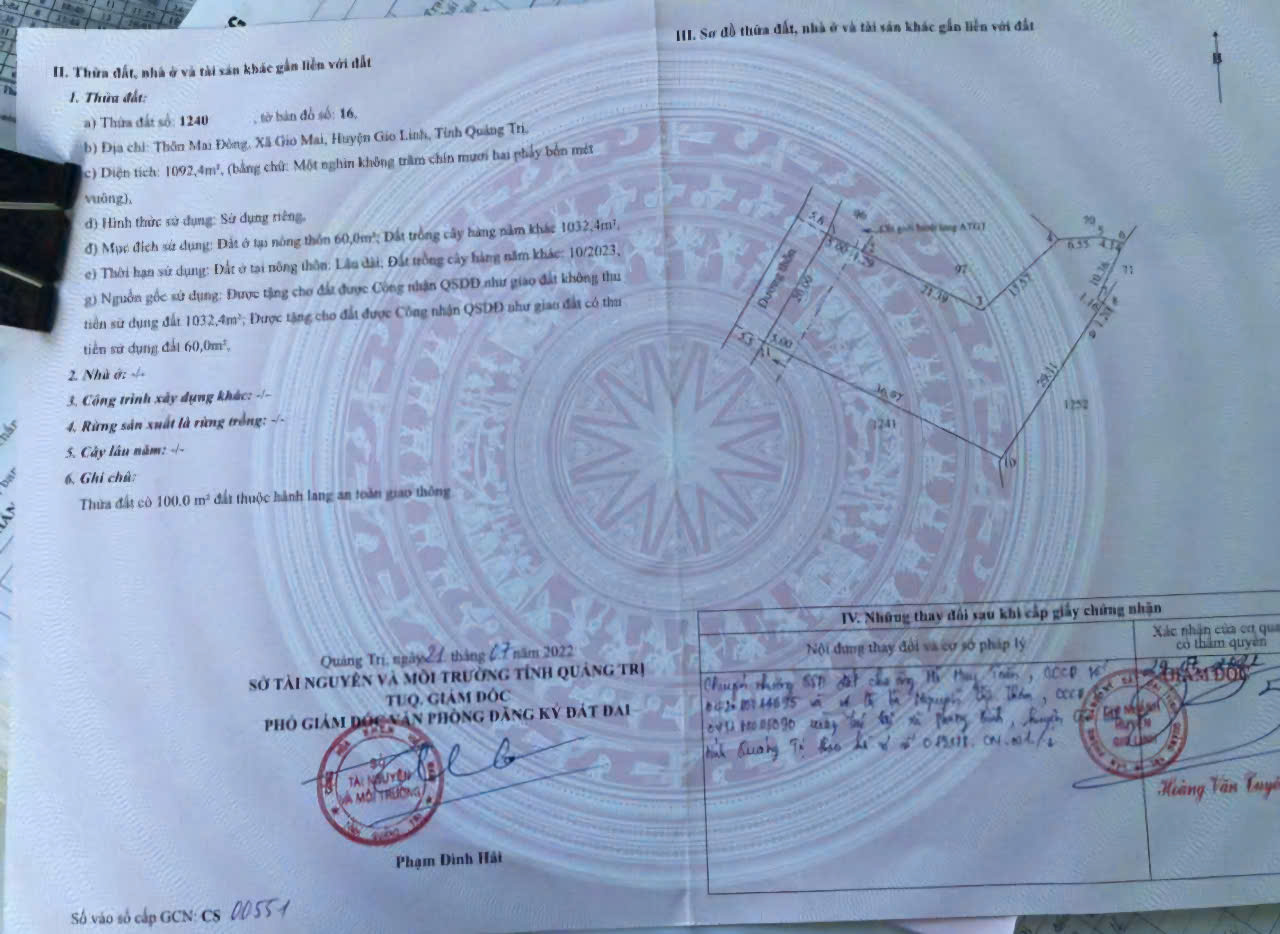 II. Thửa đất, nhà ở và tài sản khác gắn liền với đất
1. Thửa đất:
a) Thửa đất số: 1240 , tờ bản đồ số: 16,
b) Địa chỉ: Thôn Mai Đông, Xã Gio Mai, Huyện Gio Linh, Tỉnh Quảng Trị,
c) Diện tích: 1092,4m², (bằng chữ: Một nghìn không trăm chín mươi hai phẩy bốn mét
vuông),
d) Hình thức sử dụng: Sử dụng riêng,
đ) Mục đích sử dụng: Đất ở tại nông thôn 60,0m²; Đất trồng cây hàng năm khác 1032,4m²,
e) Thời hạn sử dụng: Đất ở tại nông thôn: Lâu dài; Đất trồng cây hàng năm khác: 10/2023,
g) Nguồn gốc sử dụng: Được tặng cho đất được Công nhận QSDĐ như giao đất không thu
tiền sử dụng đất 1032,4m²; Được tặng cho đất được Công nhận QSDĐ như giao đất có thu
tiền sử dụng đất 60,0m²,
2. Nhà ở: -/-
3. Công trình xây dựng khác: -/-
4. Rừng sản xuất là rừng trồng: -/-
5. Cây lâu năm: -/-
6. Ghi chú:
Thửa đất có 100.0 m² đất thuộc hành lang an toàn giao thông
Quảng Trị, ngày 21 tháng 07 năm 2022
SỞ TÀI NGUYÊN VÀ MÔI TRƯỜNG TỈNH QUẢNG TRỊ
TUQ. GIÁM ĐỐC
PHÓ GIÁM ĐỐC VĂN PHÒNG ĐĂNG KÝ ĐẤT ĐAI
SỞ
TÀI NGUYÊN
VÀ MÔI TRƯỜNG
Phạm Đình Hải
Số vào sổ cấp GCN: CS 00551
III. Sơ đồ thửa đất, nhà ở và tài sản khác gắn liền với đất
B
5.8
96
Chỉ giới hành lang ATGT
Đường thôn
20.00
21.39
97
3
17.57
4
70
5
6
6.55
4.14
10.36
71
8
9
29.11
1252
5.5
5.00
1
36.67
1241
10
IV. Những thay đổi sau khi cấp giấy chứng nhận
Nội dung thay đổi và cơ sở pháp lý
Xác nhận của cơ qua
có thẩm quyền
GIÁM ĐỐC
Hoàng Văn Tuyê